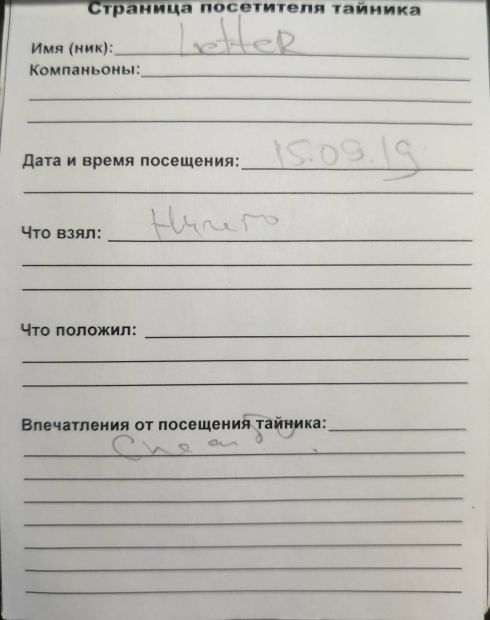 Страница посетителя тайника
Имя (ник): Letter
Компаньоны:
Дата и время посещения: 15.09.19
Что взял: Ничего
Что положил:
Впечатления от посещения тайника: